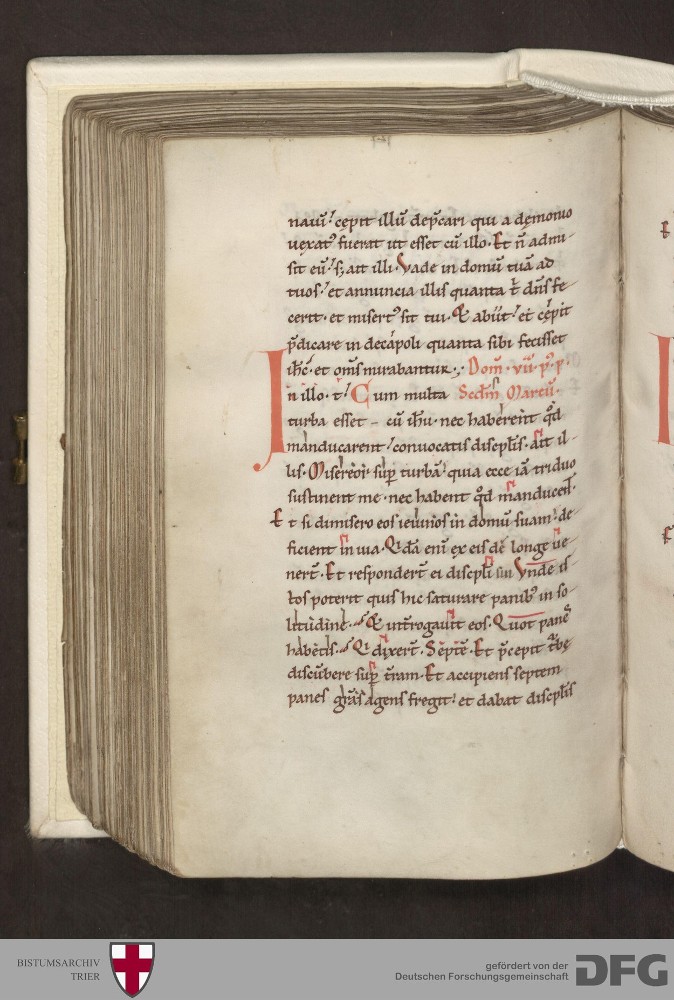 nauiᷓ. cepit illū dep̄cari qui a demonio
uexatꝰ fuerat ut esset cū illo. Et n̄ admi-
sit eū. s; ait illi. Vade in domū tuā ad
tuos. et annuncia illis quanta t̄ dn̄s fe
cerit. et misertꝰ sit tui. Et abiit. et cepit
p̄dicare in decapoli quanta sibi fecisset
ih̄c. et om̄s mirabantur. Dom̄. vii. p̊. p.
In illo. t̄. Cum multa Scdm̄ Marcū.
turba esset cū ih̄u. nec haberent qd̄
manducarent. conuocatis discipl̄is. ait il-
lis. Misereor sup̄ turbā. quia ecce iā triduo
sustinent me. nec habent qd̄ manducent.
Et si dimisero eos ieiunios in domū suam. de-
ficient in uia. Qidā eni ex eis de longe ue-
nerт̄. Et respondert̄ ei discipli sui Vnde is-
tos poterit quis hic saturare panibꝰ in so-
litudine. Et int̄rogauit eos. Quot panes
habetis. Qi dixert̄. Septē. Et p̄cepit turbę
discūbere sup̄ t̄ram. Et accipiens septem
panes gr̄as agens fregit. et dabat discipl̄is
BISTUMSARCHIV
TRIER
gefördert von der
Deutschen Forschungsgemeinschaft
DFG